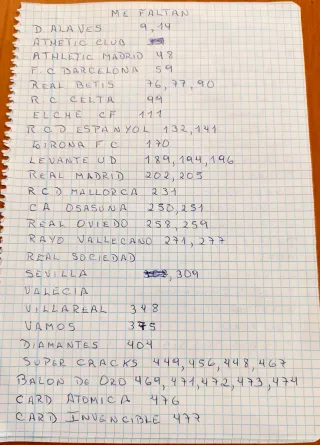 ME FALTAN
D ALAVES 9,14
ATHETIC CLUB
ATHLETIC MADRID 48
F.C BARCELONA 59
REAL BETIS 76,77,90
R C CELTA 99
ELCHE CF 111
R C D ESPANYOL 132,141
GIRONA F C 170
LEVANTE UD 189,194,196
REAL MADRID 202,205
R C D MALLORCA 231
CA OSASUNA 250,251
REAL OVIEDO 258,259
RAYO VALLECANO 271,277
REAL SOCIEDAD
SEVILLA , 309
VALECIA
VILLAREAL 348
VAMOS 375
DIAMANTES 404
SUPER CRACKS 449,456,448,467
BALON DE ORO 469,471,472,473,474
CARD ATOMICA 476
CARD INVENCIBLE 477